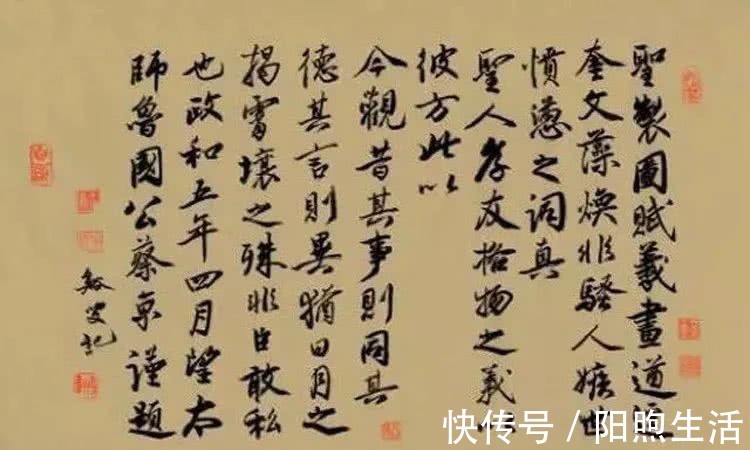 聖製圖賦羲畫道
奎文藻煥非騷人嫉世
憤懣之詞真
聖人孝友格物之義
彼方此以
今觀昔其事則同其
德其言則異猶日月之
揭霄壤之殊非臣敢私
也政和五年四月望太
師魯國公蔡京謹題
谿叟記
快传号 / 阳煦生活